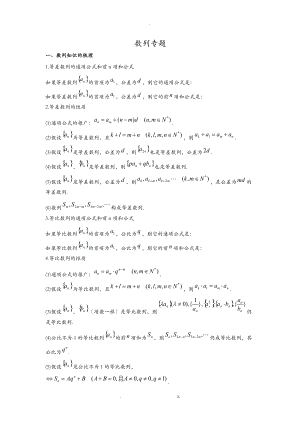 数列专题
一、数列知识的梳理
1.等差数列的通项公式和前 n 项和公式
如果等差数列{aₙ}的首项为a₁，公差为d，则它的通项公式是：
如果等差数列{aₙ}的首项为a₁，公差为d，则它的前n项和公式是：
2.等差数列的性质
(1)通项公式的推广：aₙ = aₘ + (n−m)d (n,m∈N*)
(2)假设{aₙ}为等差数列，且k+l=m+n (k,l,m,n∈N*)，则
(3)假设{aₙ}是等差数列，公差为d，则{a₂ₙ}也是等差数列，公差为2d.
(4)假设{aₙ}、{bₙ}是等差数列，则{paₙ+qbₙ}也是等差数列.
(5)假设{aₙ}是等差数列，公差为d，则aₖ,aₖ₊ₘ,aₖ₊₂ₘ,⋯ (k,m∈N*)，是公差为md的
等差数列.
(6)数列Sₘ,S₂ₘ₋ₘ,S₃ₘ₋₂ₘ,⋯构成等差数列.
3.等比数列的通项公式和前 n 项和公式
如果等比数列{aₙ}的首项为a₁，公比为q，则它的通项公式是：
如果等比数列{aₙ}的首项为a₁，公比为q，则它的前n项和公式是：
4.等比数列的性质
(1)通项公式的推广：aₙ = aₘ·qⁿ⁻ᵐ (n,m∈N*)
(2)假设{aₙ}为等比数列，且k+l=m+n (k,l,m,n∈N*)，则aₖ·aₗ=aₘ·aₙ.
(3)假设{aₙ}、{bₙ}（项数一样）是等比数列，则 仍
是等比数列.
(4)公比不为-1 的等比数列{aₙ}的前n项和为Sₙ，则 仍成等比数列，其
公比为qⁿ
(5)假设{aₙ}是公比不为 1 的等比数列，
⇔Sₙ=Aqⁿ+B (A+B=0,且q≠0,q≠1)